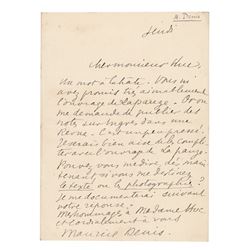 M. Denis
Jeudi
Cher monsieur Huc,
Un mot à la hâte. Vous m'
avez promis très aimablement
l'ouvrage de Lapauze. Or on
me demande de publier des
notes sur Ingres dans une
Revue. C'est un peu pressé.
Je serais bien aise de les
avec l'ouvrage de Lapauze.
Pouvez-vous me dire dès main
tenant si vous me destinez
le texte ou la photographie?
Je me documenterai suivant
votre réponse.
Mes hommages à Madame Huc
et cordialement à vous
Maurice Denis.